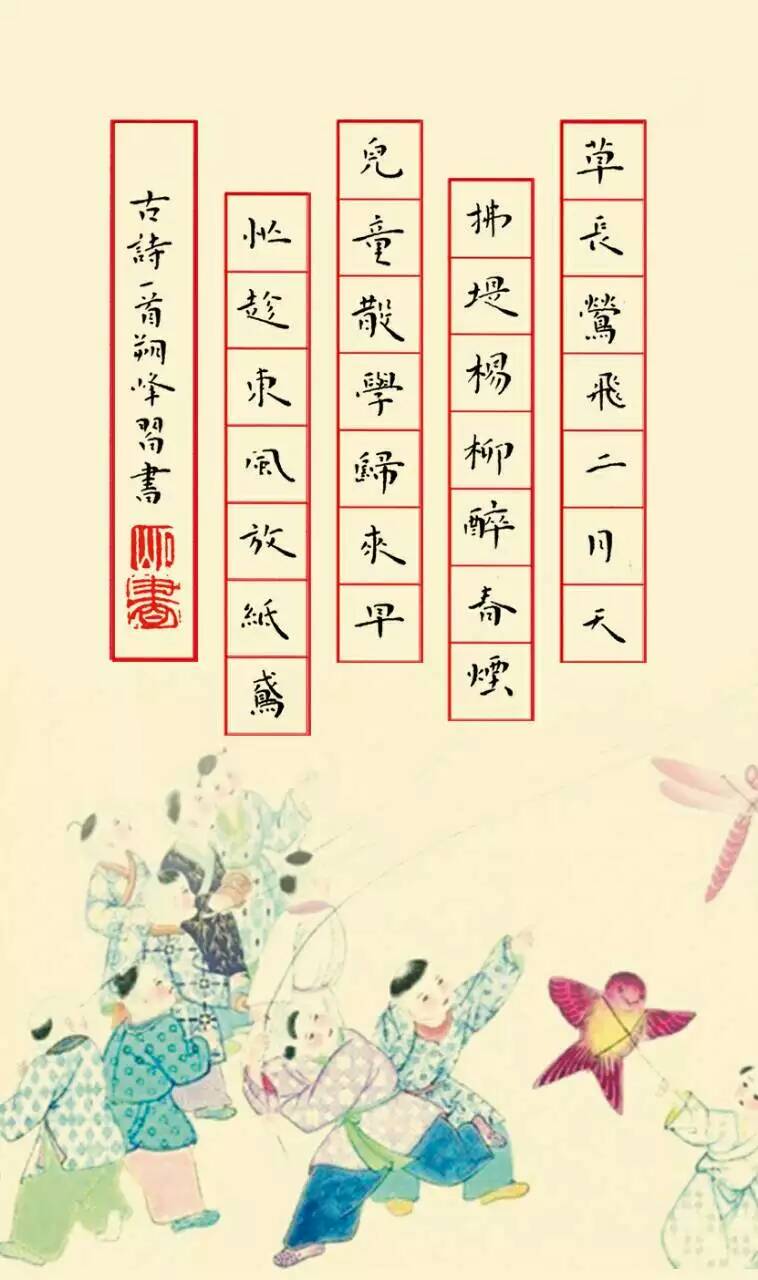 草長鶯飛二月天
拂堤楊柳醉春煙
兒童散學歸來早
忙趁東風放紙鳶
古詩一首翔峰習書